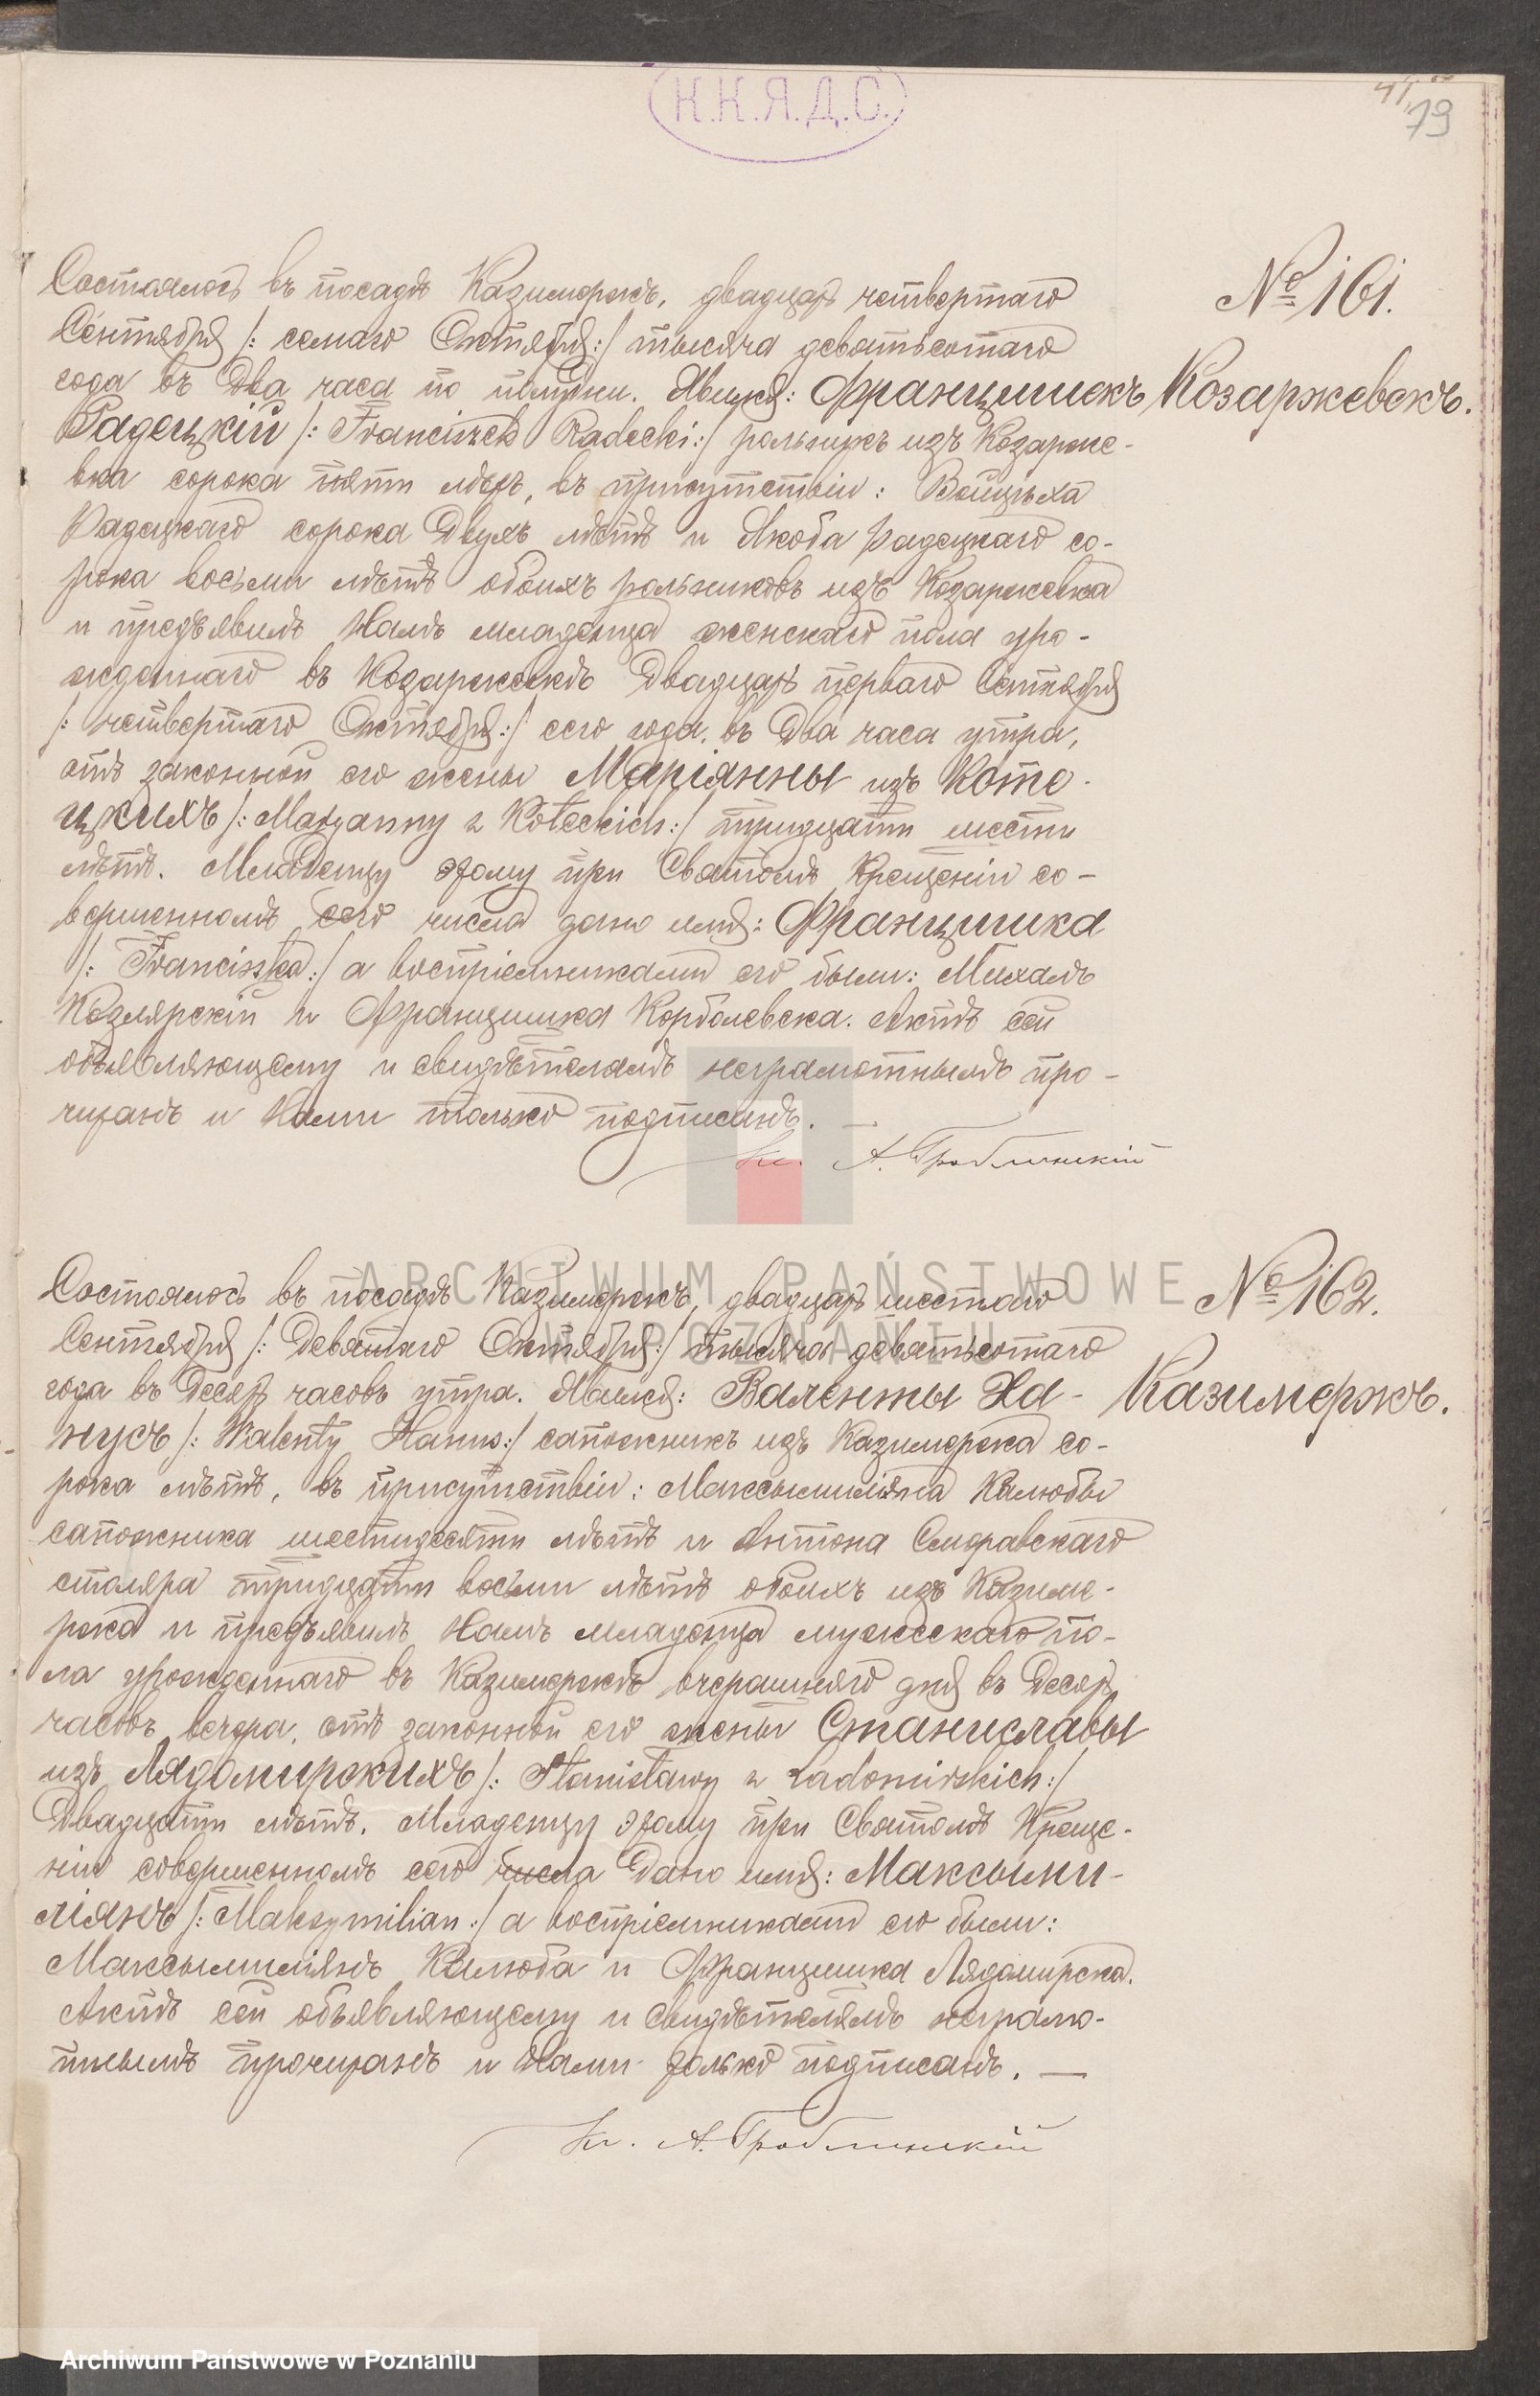 Н.Н.Я.Д.С.
79
№ 161.
Козаржевекъ.
Состоялось въ посадѣ Казимержъ, двадцать четвертаго
Сентября /: седьмаго Октября :/ тысяча девятьсотаго
года въ два часа по полудни. Явился: Францишекъ
Радецкій /: Franciszek Radecki :/ рольникъ изъ Козарже-
вка сорока пяти лѣтъ, въ присутствіи: Войцѣха
Радецкаго сорока двухъ лѣтъ и Якоба Радецкаго со-
рока восьми лѣтъ обоихъ рольниковъ изъ Козаржевка
и предъявилъ Намъ младенца женскаго пола уро-
жденнаго въ Козаржевкѣ двадцать перваго Сентября
/: четвертаго Октября :/ сего года, въ два часа утра,
отъ законной его жены Маріянны изъ Коте-
цкихъ /: Maryanny z Koteckich :/ тридцати шести
лѣтъ. Младенцу этому при Святомъ Крещеніи со-
вершенномъ сего числа дано имя: Францишка
/: Franciszka :/ а воспріемниками его были: Михалъ
Козлярскій и Францишка Корболевска. Актъ сей
объявляющему и свидѣтелямъ неграмотнымъ про-
читанъ и Нами только подписанъ. —
Кс. А. Гроблинскій
№ 162.
Казимержъ.
Состоялось въ посадѣ Казимержъ, двадцать шестаго
Сентября /: девятаго Октября :/ тысяча девятьсотаго
года въ десять часовъ утра. Явился: Валенты Ха-
нусъ /: Walenty Hanus :/ сапожникъ изъ Казимержа со-
рока лѣтъ, въ присутствіи: Максымиліяна Калюбы
сапожника шестидесяти лѣтъ и Антона Сморавскаго
столяра тридцати восьми лѣтъ обоихъ изъ Казиме-
ржа и предъявилъ Намъ младенца мужескаго по-
ла урожденнаго въ Казимержѣ вчерашняго дня въ десять
часовъ вечера, отъ законной его жены Станиславы
изъ Лядомирскихъ /: Stanisławy z Ladomirskich :/
двадцати лѣтъ. Младенцу этому при Святомъ Креще-
ніи совершенномъ сего числа дано имя: Максыми-
ліянъ /: Maksymilian :/ а воспріемниками его были:
Максымиліянъ Калюба и Францишка Лядомирска.
Актъ сей объявляющему и свидѣтелямъ неграмо-
тнымъ прочитанъ и Нами только подписанъ. —
Кс. А. Гроблинскій
ARCHIWUM PAŃSTWOWE
W POZNANIU
Archiwum Państwowe w Poznaniu